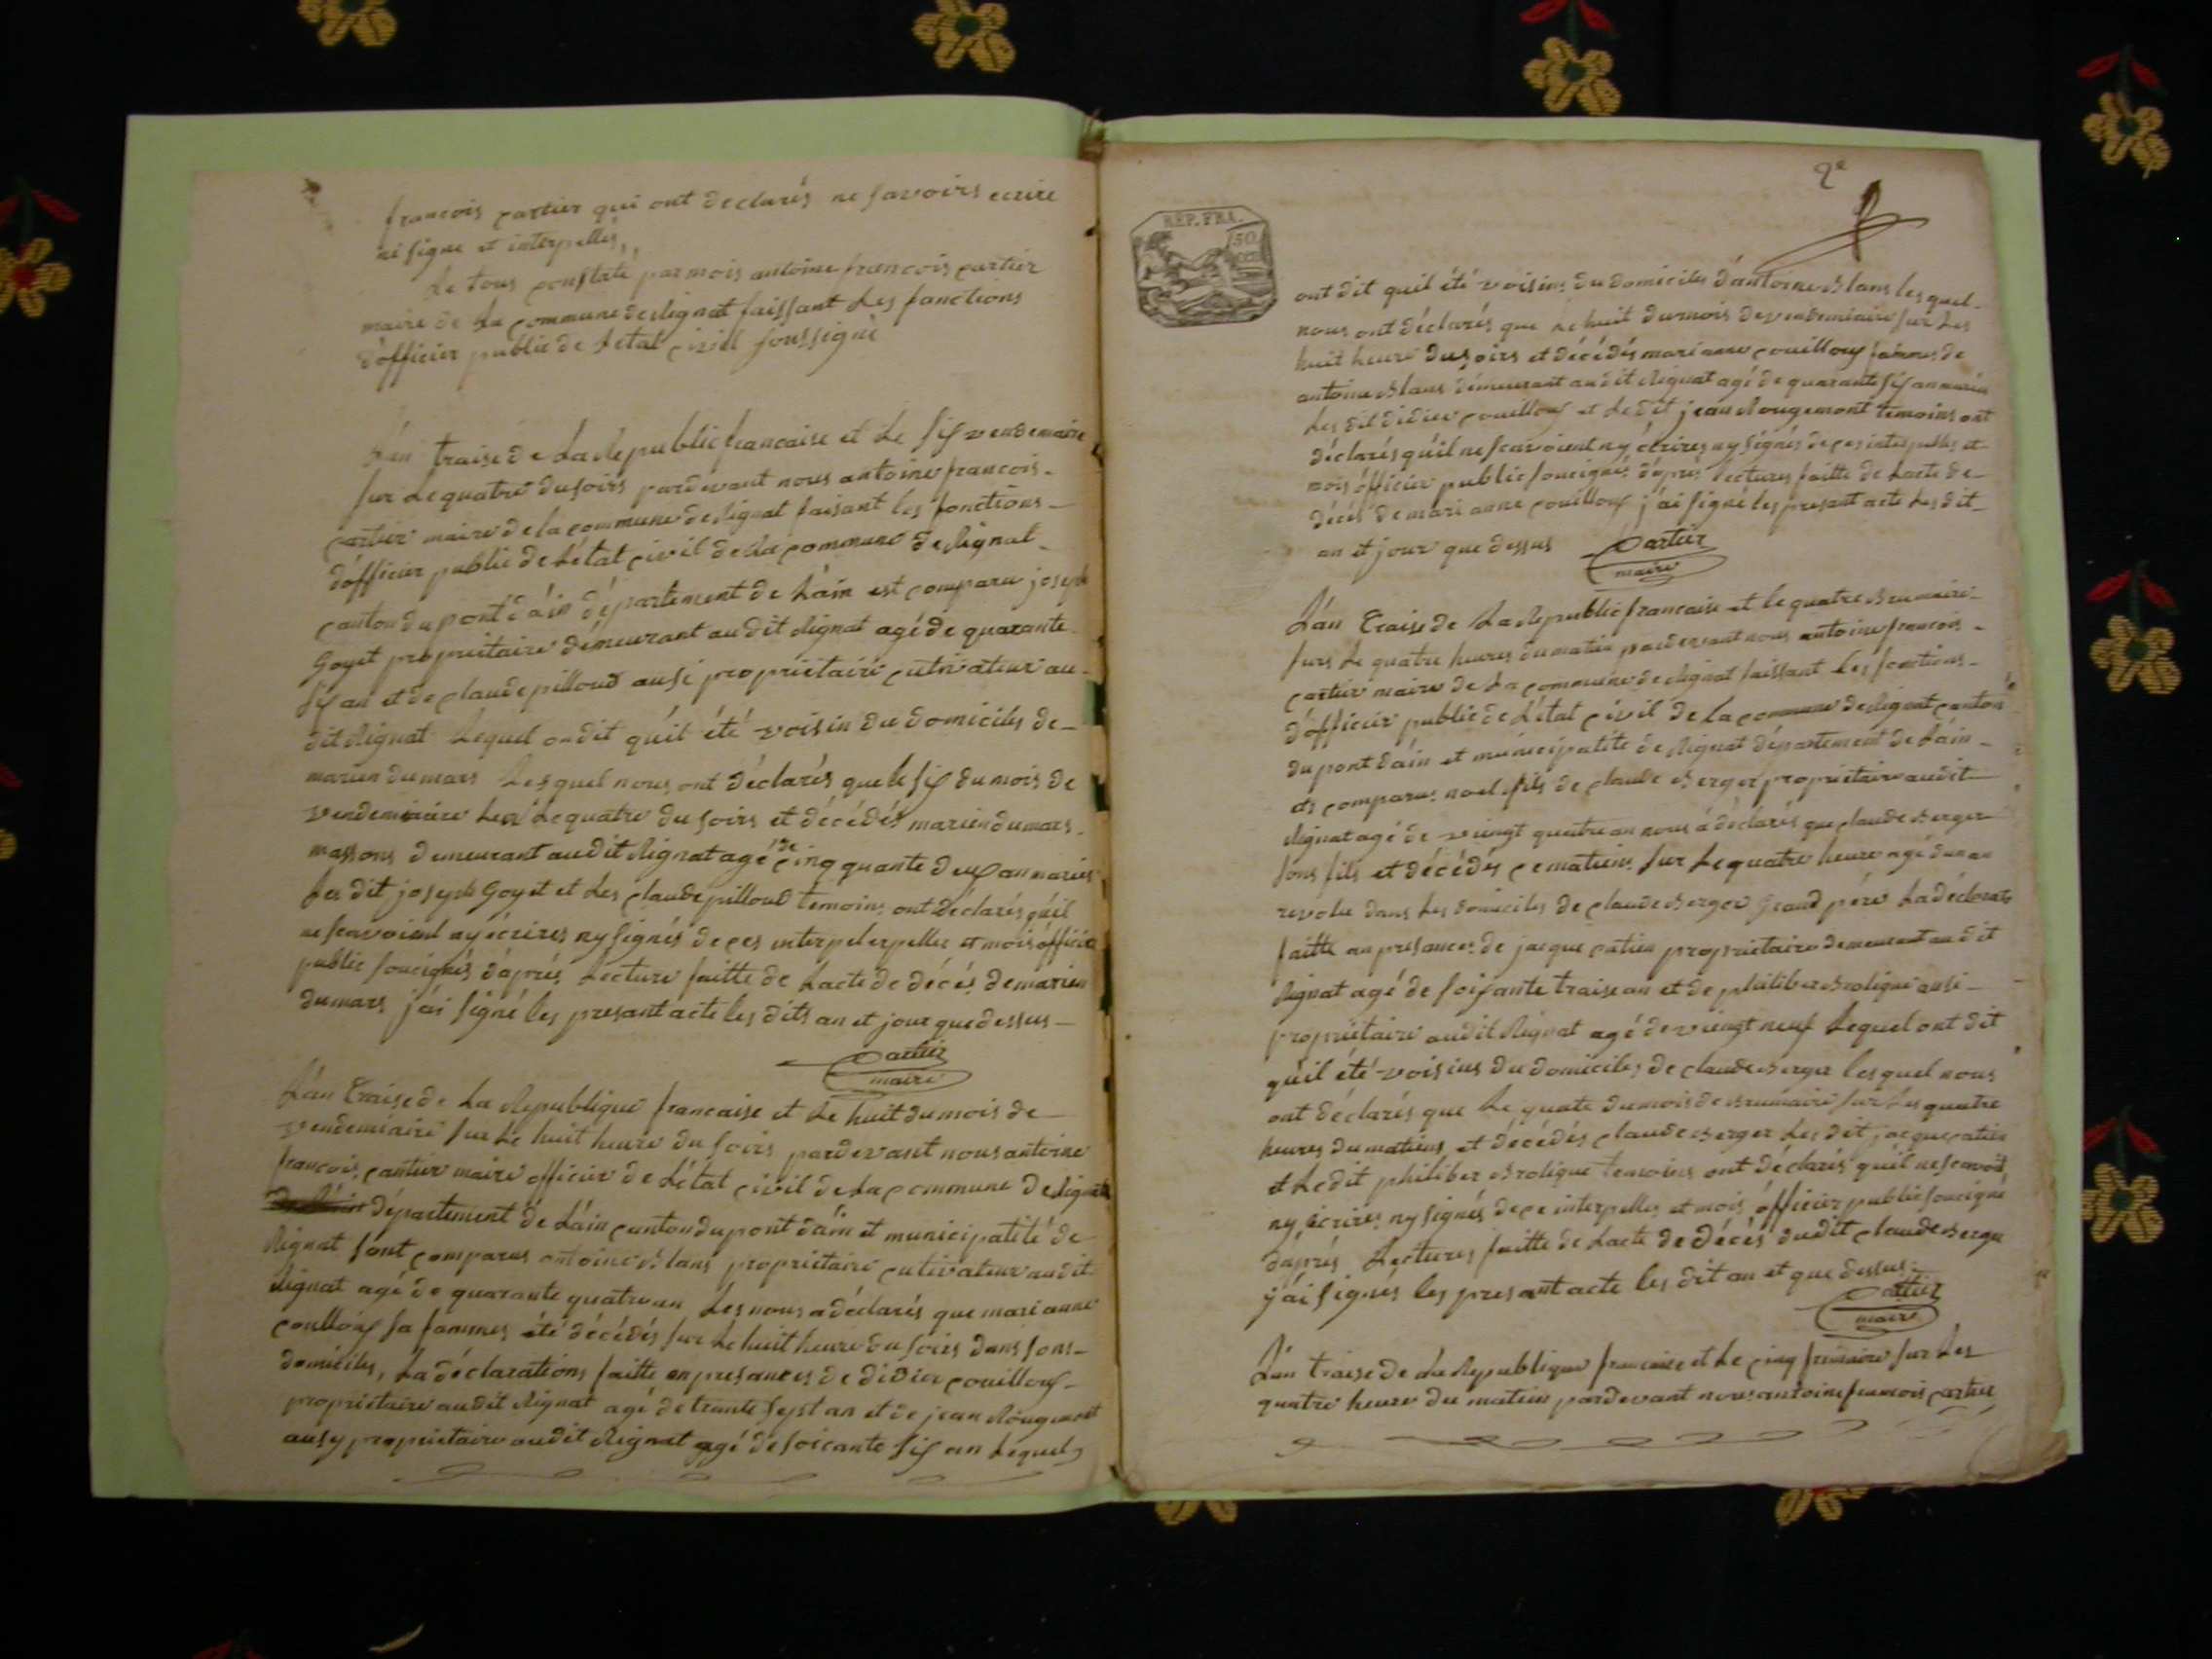 francois cartier qui ont declarés ne savoirs ecrire
ni signe et interpellés,
Le tous constate par mois antoine francois cartier
maire de La commune de Rignat faissant Les fonctions
d'officier public de Letat civil soussigné
Lán traise de La Republic francaise et Le six vendemaire
sur Le quatre du soirs pardevant nous antoine francois
cartier maire de la commune de Rignat faisant les fonctions
d'officier public de Létat civil de La commune de Rignat
canton du pont d'áin département de Láin est comparu joseph
Goyet propriétaire démeurant audit Rignat agé de quarante
six an et de claude pilloud ausi propriétaire cutivateur au
dit Rignat Lequel on dit qu'il été voisin du domiciles de
marien dumars Lesquel nous ont déclarés que le six du mois de
vendemiaire Le quatre du soirs et décédés marien dumars
massons demeurant audit Rignat agé de cinq quante deux an mariés
Les dit joseph Goyet et Les claude pilloud temoins ont déclarés qúil
ne scavoient ny écrires ny signés de ces interpelerpelles et mois officier
public soucignés dáprés Lecture faitte de Lacte de décés de marien
dumars j'ai signé les presant acte les dits an et jour que dessus
Cartier
maire
Lán traise de La Republique francaise et Le huit du mois de
vendemiaire sur Le huit heure du soirs pardevant nous antoine
francois cartier maire officier de Létat civil de La commune de Rignat
département de Láin canton du pont dáin et municipatité de
Rignat sont comparus antoine Blanc propriétaire cutivateur audit
Rignat agé de quarante quatre an Les nous a déclarés que mari anne
couilloux sa fammes été décédés sur Le huit heure du soirs dans sons
domiciles, La déclarations faitte en presances de didier couilloux
propriétaire audit Rignat agé de trante sept an et de jean Rougemont
ausy propriétaire audit Rignat agé de soicante six an Lequel
2e
REP. FRA.
50
cen
ont dit quil été voisins du domiciles d'antoine Blans lesquel
nous ont déclarés que Le huit du mois de vendemiaire sur Les
huit heure du soirs et décédés mari anne couilloux fammes de
antoine Blanc démeurant audit Rignat agé de quarante six an
Les dit didier couilloux et Ledit jean Rougemont temoins ont
déclarés qúil ne scavoient ny écrires ny signés de ces interpelles et
mois officier public soucignés dáprés lectures faitte de Lacte de
décés de mari anne couilloux j'ai signé les presant acte Les dit
an et jour que dessus Cartier
maire
Lán traise de La Republic francaise et le quatre Brumaire
surs Le quatre heures du matin pardevant nous antoine francois
cartier maire de La commune de Rignat faissant Les fonctions
d'officier public de Létat civil de la commune de Rignat canton
du pont dáin et municipatité de Rignat département de Láin
comparu noel fils de claude Berger propriétaire audit
Rignat agé de vieingt quatre an nous a déclarés que claude Berger
sons fils et décédés ce matiens sur Le quatre heure agé dun an
revolu dans Les domiciles de claude Berger Grand pére La déclarats
faitte au presances de jacque catien propriétaire demeurant audit
Rignat agé de soixante traise an et de philiber Brolique ausi
propriétaire audit Rignat agé de vieingt neuf Lequel ont dit
qúil été voisins du domiciles de claude Berger lesquel nous
ont déclarés que Le quate du mois de Brumaire sur Les quatre
heures du matiens et décédés claude Berger Les dit jacque catien
et Ledit philiber Brolique temoins ont déclarés qúil ne scavoit
ny écrires ny signés de ce interpelles et mois officier public soucigné
dáprés Lectures faitte de Lacte de décés dudit claude Berger
j'ai signés les presant acte les dit an et que dessus
Cartier
maire
Lán traise de La Republique francaise et Le cinq frimaire sur Les
quatre heure du matien pardevant nous antoine francois cartier